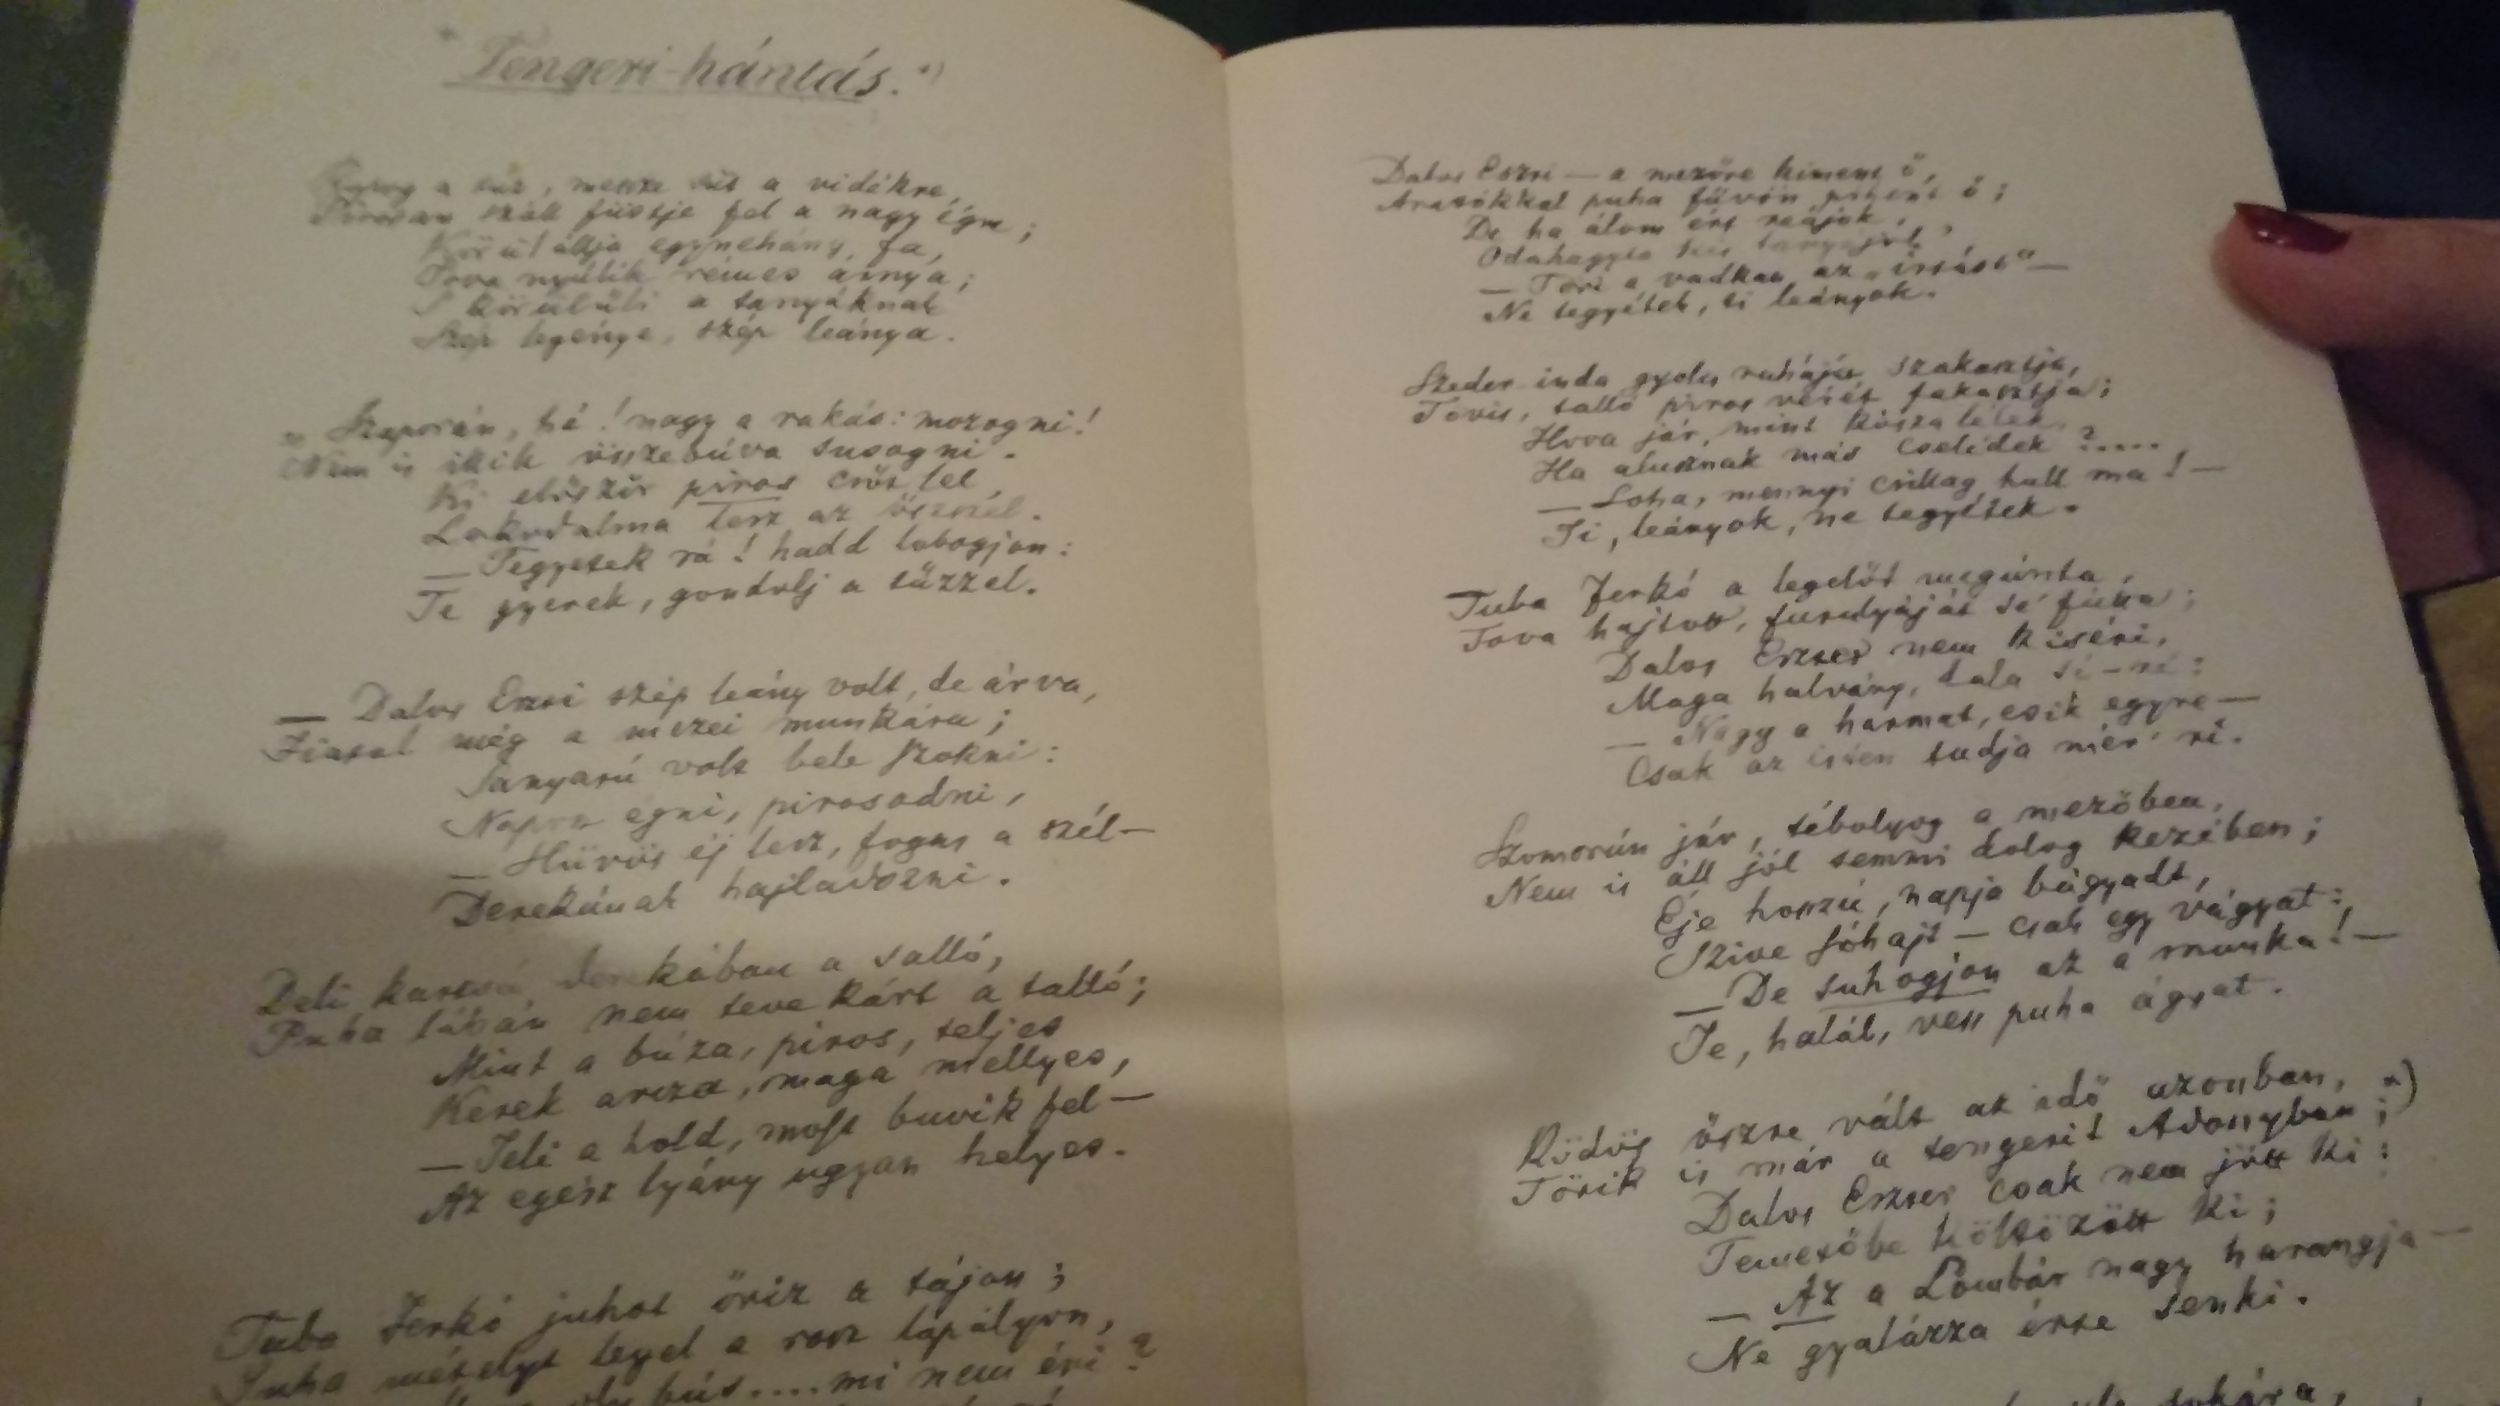 Tengeri-hántás. *)
Ropog a tűz, messze süt a vidékre,
Pirosan száll füstje fel a nagy égre;
Körül állja egynehány fa,
Tova nyúlik rémes árnya;
S körül űli a tanyáknak
Szép legénye, szép leánya.
„Szaporán, hé! nagy a rakás: mozogni!
Nem is illik összebúva susogni.
Ki először piros csőt lel,
Lakodalma lesz az ősszel.
— Tegyetek rá! hadd lobogjon:
Te gyerek, gondolj a tűzzel.
— Dalos Eszti szép leány volt, de árva,
Fiatal még a mezei munkára;
Sanyarú volt bele szokni:
Napon égni, pirosodni,
— Hüvös éj lesz, fogas a szél —
Derekának hajladozni.
Deli karcsú derekában a salló,
Puha lábán nem teve kárt a talló;
Mint a búza, piros, teljes
Kerek arcza, maga mellyes,
— Teli a hold, most buvik fel —
Az egész lyány ugyan helyes.
Tuba Ferkó juhot őriz a tájon;
Juha mételyt legel a rosz lapályon,
bús.... mi nem éri?
Dalos Eszti — a mezőre kiment ő,
Aratókkal puha fűvön pihent ő;
De ha álom ért reájok,
Odahagyta kis tanyájok,
— Töri a vadkan az „irtást" —
Ne tegyétek, ti leányok.
Szeder inda gyolcs ruháját szakasztja,
Tövis, talló piros vérét fakasztja;
Hova jár, mint kósza lélek,
Ha alusznak más cselédek?....
— Soha, mennyi csillag hull ma! —
Ti, leányok, ne tegyétek.
Tuba Ferkó a legelőt megúnta,
Tova hajtott, furulyáját se fúita;
Dalos Eszter nem kiséri,
Maga halvány, dala sí-rí:
— Nagy a harmat, esik egyre —
Csak az isten tudja miér' rí.
Szomorún jár, tébolyog a mezőben,
Nem is áll jól semmi dolog kezében;
Éje hosszú, napja bágyadt,
Szive sóhajt — csak egy vágyat:
— De suhogjon az a munka! —
Te, halál, vess puha ágyat.
Ködös őszre vált az idő azonban,
Törik is már a tengerit Adonyban; *)
Dalos Eszter csak nem jött ki:
Temetőbe költözött ki;
— Az a Lombár nagy harangja —
Ne gyalázza érte senki.
sokára,